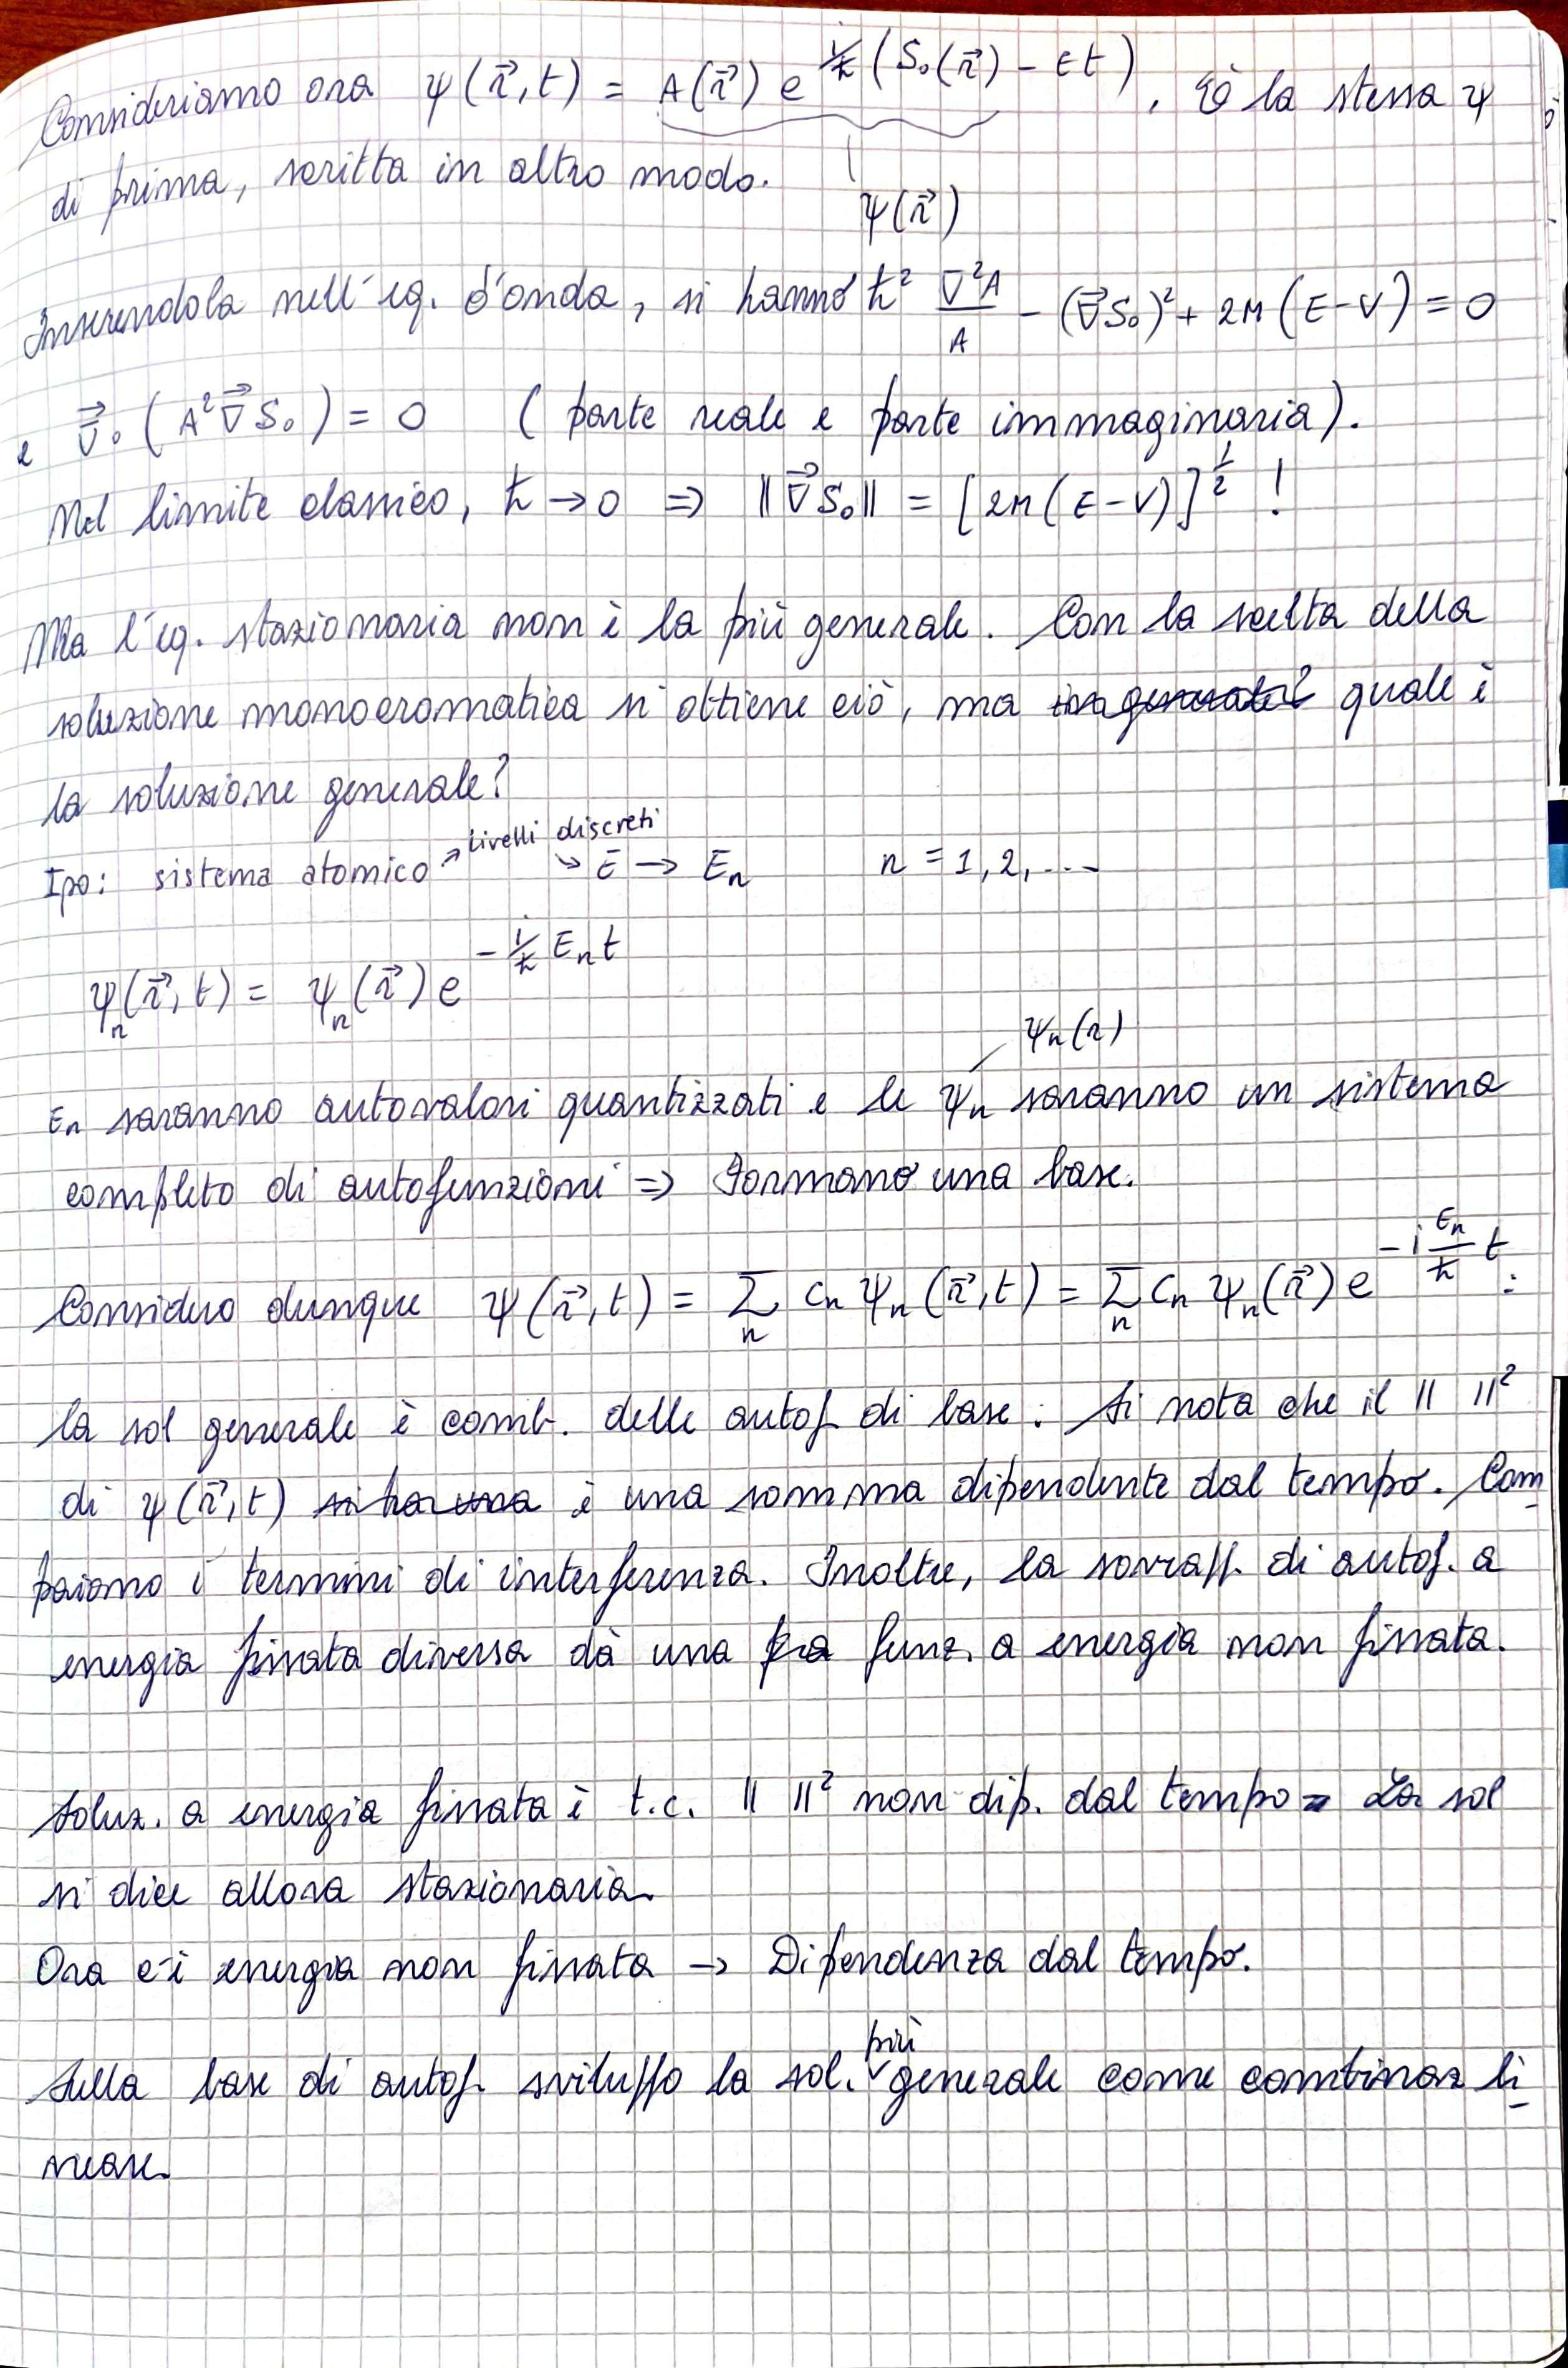 Consideriamo ora ψ(r⃗,t) = A(r⃗) e^{i/ħ (S₀(r⃗) - Et)}. È la stessa ψ
di prima, scritta in altro modo.
ψ(r⃗)
Inserendola nell'eq. d'onda, si hanno ħ² ∇²A/A - (∇⃗S₀)² + 2M(E-V) = 0
e ∇⃗·(A²∇⃗S₀) = 0 (parte reale e parte immaginaria).
Nel limite classico, ħ → 0 ⇒ ||∇⃗S₀|| = [2M(E-V)]^{1/2} !
Ma l'eq. stazionaria non è la più generale. Con la scelta della
soluzione monocromatica si ottiene ciò, ma in generale quale è
la soluzione generale?
Ipo: sistema atomico → livelli discreti → E → Eₙ n = 1,2,...
ψₙ(r⃗,t) = ψₙ(r⃗) e^{-i/ħ Eₙt}
ψₙ(r)
Eₙ saranno autovalori quantizzati e le ψₙ saranno un sistema
completo di autofunzioni ⇒ Formano una base.
Considero dunque ψ(r⃗,t) = Σₙ cₙ ψₙ(r⃗,t) = Σₙ cₙ ψₙ(r⃗) e^{-i Eₙ/ħ t} :
la sol generale è comb. delle autof. di base. Si nota che il || ||²
di ψ(r⃗,t) si ha una è una somma dipendente dal tempo. Com
paiono i termini di interferenza. Inoltre, la sovrapp. di autof. a
energia fissata diversa dà una funz. a energia non fissata.
Soluz. a energia fissata è t.c. || ||² non dip. dal tempo = La sol
si dice allora stazionaria.
Ora c'è energia non fissata → Dipendenza dal tempo.
Sulla base di autof. sviluppo la sol. più generale come combinaz li
neare.